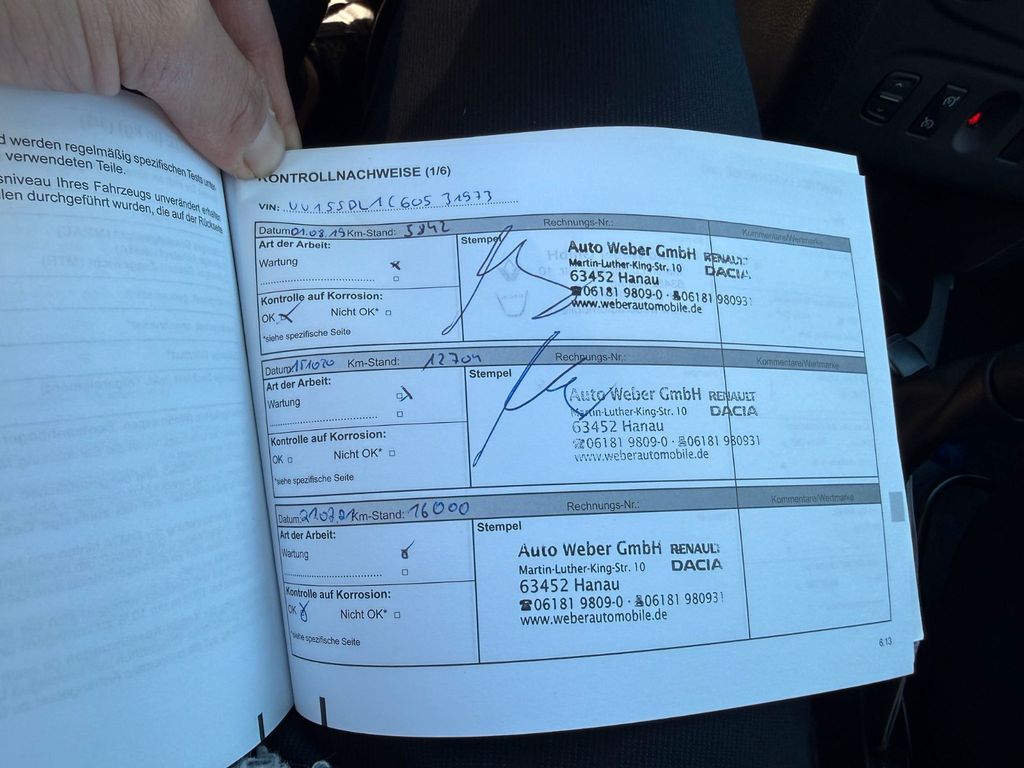 werden regelmäßig spezifischen Tests
verwendeten Teile.
Ihres Fahrzeugs unverändert erhalten
durchgeführt wurden, die auf der Rückseite
KONTROLLNACHWEISE (1/6)
VIN:
Datum: 01.08.19 Km-Stand: 5842 Rechnungs-Nr.: Kommentare/Wertmarke
Art der Arbeit:
Wartung
Kontrolle auf Korrosion:
OK Nicht OK*
*siehe spezifische Seite
Stempel
Auto Weber GmbH RENAULT
Martin-Luther-King-Str. 10 DACIA
63452 Hanau
☎06181 9809-0 · 06181 980931
www.weberautomobile.de
Datum: 151020 Km-Stand: 12704 Rechnungs-Nr.: Kommentare/Wertmarke
Art der Arbeit:
Wartung
Kontrolle auf Korrosion:
OK Nicht OK*
*siehe spezifische Seite
Stempel
Auto Weber GmbH RENAULT
Martin-Luther-King-Str. 10 DACIA
63452 Hanau
☎06181 9809-0 · 06181 980931
www.weberautomobile.de
Datum: 21.07.21 Km-Stand: 16000 Rechnungs-Nr.: Kommentare/Wertmarke
Art der Arbeit:
Wartung
Kontrolle auf Korrosion:
OK Nicht OK*
*siehe spezifische Seite
Stempel
Auto Weber GmbH RENAULT
Martin-Luther-King-Str. 10 DACIA
63452 Hanau
☎06181 9809-0 · 06181 980931
www.weberautomobile.de
6.13